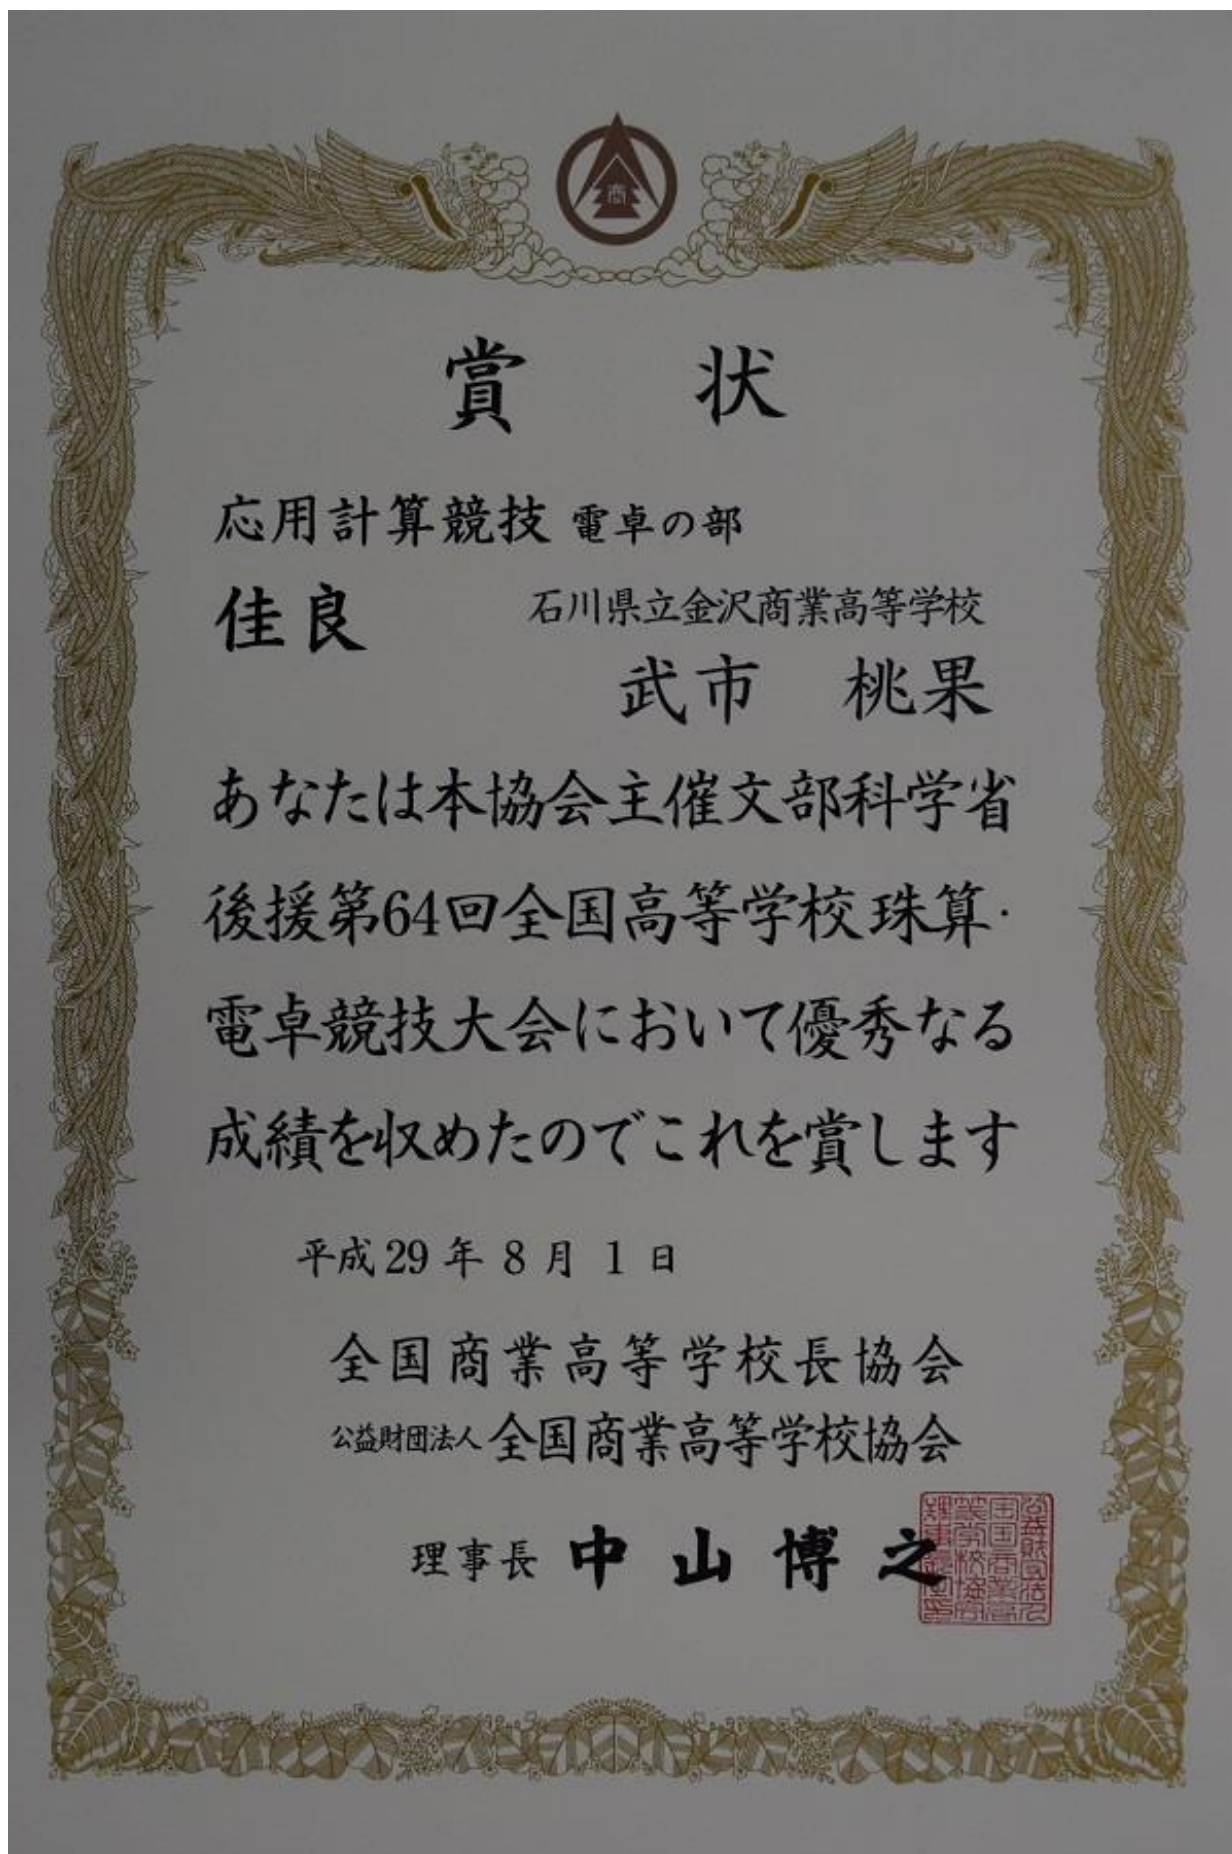 商
賞 状
応用計算競技 電卓の部
佳良 石川県立金沢商業高等学校
武市 桃果
あなたは本協会主催文部科学省
後援第64回全国高等学校珠算・
電卓競技大会において優秀なる
成績を収めたのでこれを賞します
平成29年8月1日
全国商業高等学校長協会
公益財団法人 全国商業高等学校協会
理事長 中山博之